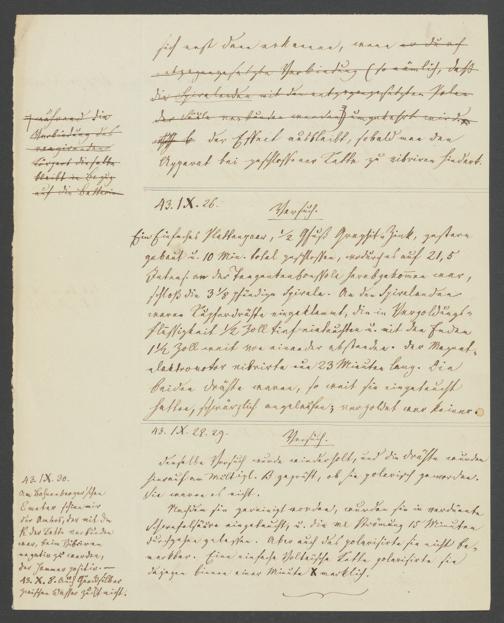 sich erst dann erkennen, wenn er durch
entgegengesetzte Verbindung (so nämlich, daß
die Spiralenden mit den entgegengesetzten Polen
der Säule verbunden werden) umgekehrt wird
der Effect ausbleibt, sobald man den
Apparat bei geschlossener Kette zu vibriren hindert.
während die
Verbindung des
Körpers dieselbe
bleibt in Bezug
auf die Batterie
43. IX. 26.
Versuch.
Ein einfaches Plattenpaar, 1/2 Graphit-Zink, gestern
gebaut u. 10 Min. total geschlossen, wodurch es auf 21,5
der Tangentenboussole herabgekommen war,
schloß die 3 1/8 pfündige Spirale. An den Spiralenden
waren Kupferdrähte eingeklemmt, die in Vergoldungs-
flüssigkeit 1/2 Zoll tief eintauchten u. mit den Enden
1 1/2 Zoll weit von einander abstanden. der Magnet-
elektromotor vibrirte nun 23 Minuten lang. Die
beiden Drähte waren, so weit sie eingetaucht
hatten, schwärzlich angelaufen; vergoldet war keiner.
43. IX. 28. 29.
Versuch.
derselbe Versuch wurde wiederholt, und die Drähte wurden
hierauf am Multipl. B geprüft, ob sie polarisch geworden.
Sie waren es nicht.
Nachdem sie gereinigt worden, wurden sie in verdünnte
Schwefelsäure eingetaucht, u. die Strömung 15 Minuten
durchgehen gelassen. Aber auch das polarisirte sie nicht be-
merkbar. Eine einfache Voltaische Kette polarisirte sie
dagegen binnen einer Minute merklich.
43. IX. 30.
Am Bohnenberger'schen
schien mir
der Ambos, der mit dem
K. der Kette verbunden
war, beim Vibriren
negativ zu werden,
der Hammer positiv. —
43. X. 8. Auch Quecksilber
zwischen Wasser zuckt nicht.